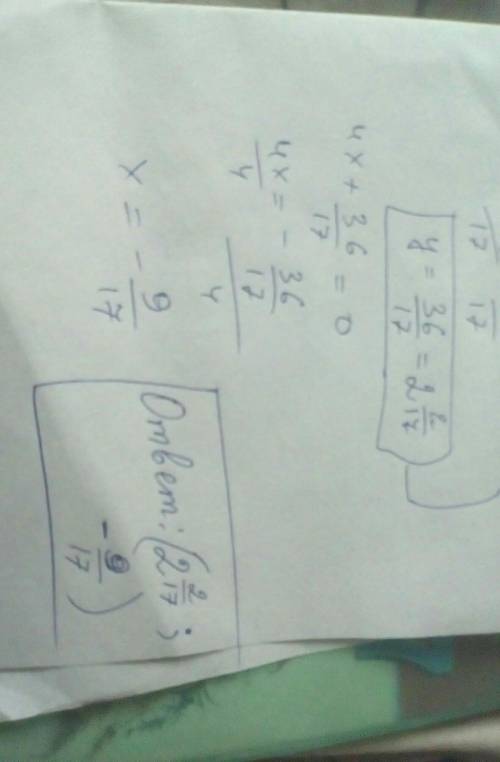 17 17
y = 36/17 = 2 2/17
4x + 36/17 = 0
4x/4 = - 36/17 / 4
x = - 9/17
Ответ: (2 2/17 ;
- 9/17)